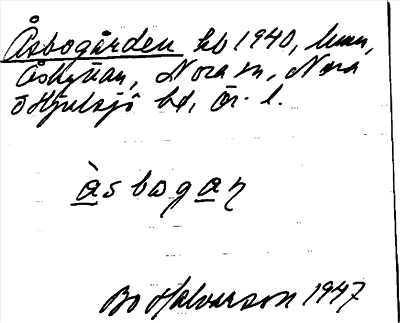 Åsbogården kb 1940, hmn,
Åshyttan, Nora sn, Nora
o Hjulsjö bd, Ör. l.
àsbogan
Bo Halvarson 1947